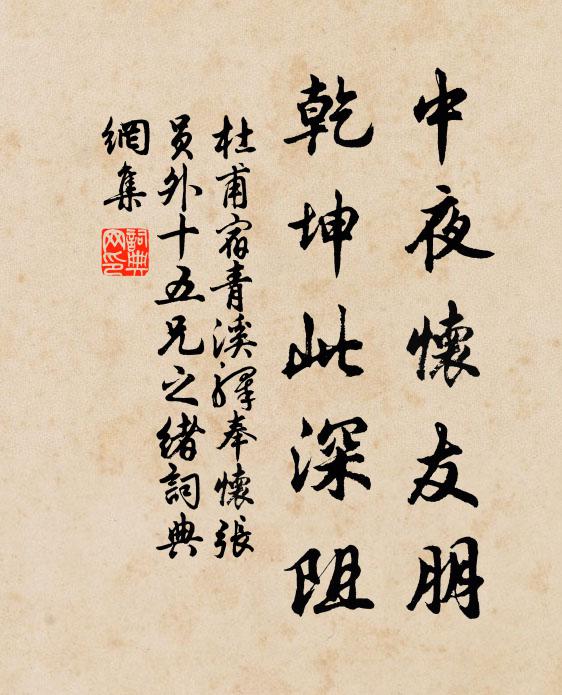 中夜懷友朋
乾坤此深阻
杜甫宿青溪驛奉懷張
員外十五兄之緒詞典
網集
詞典
网印